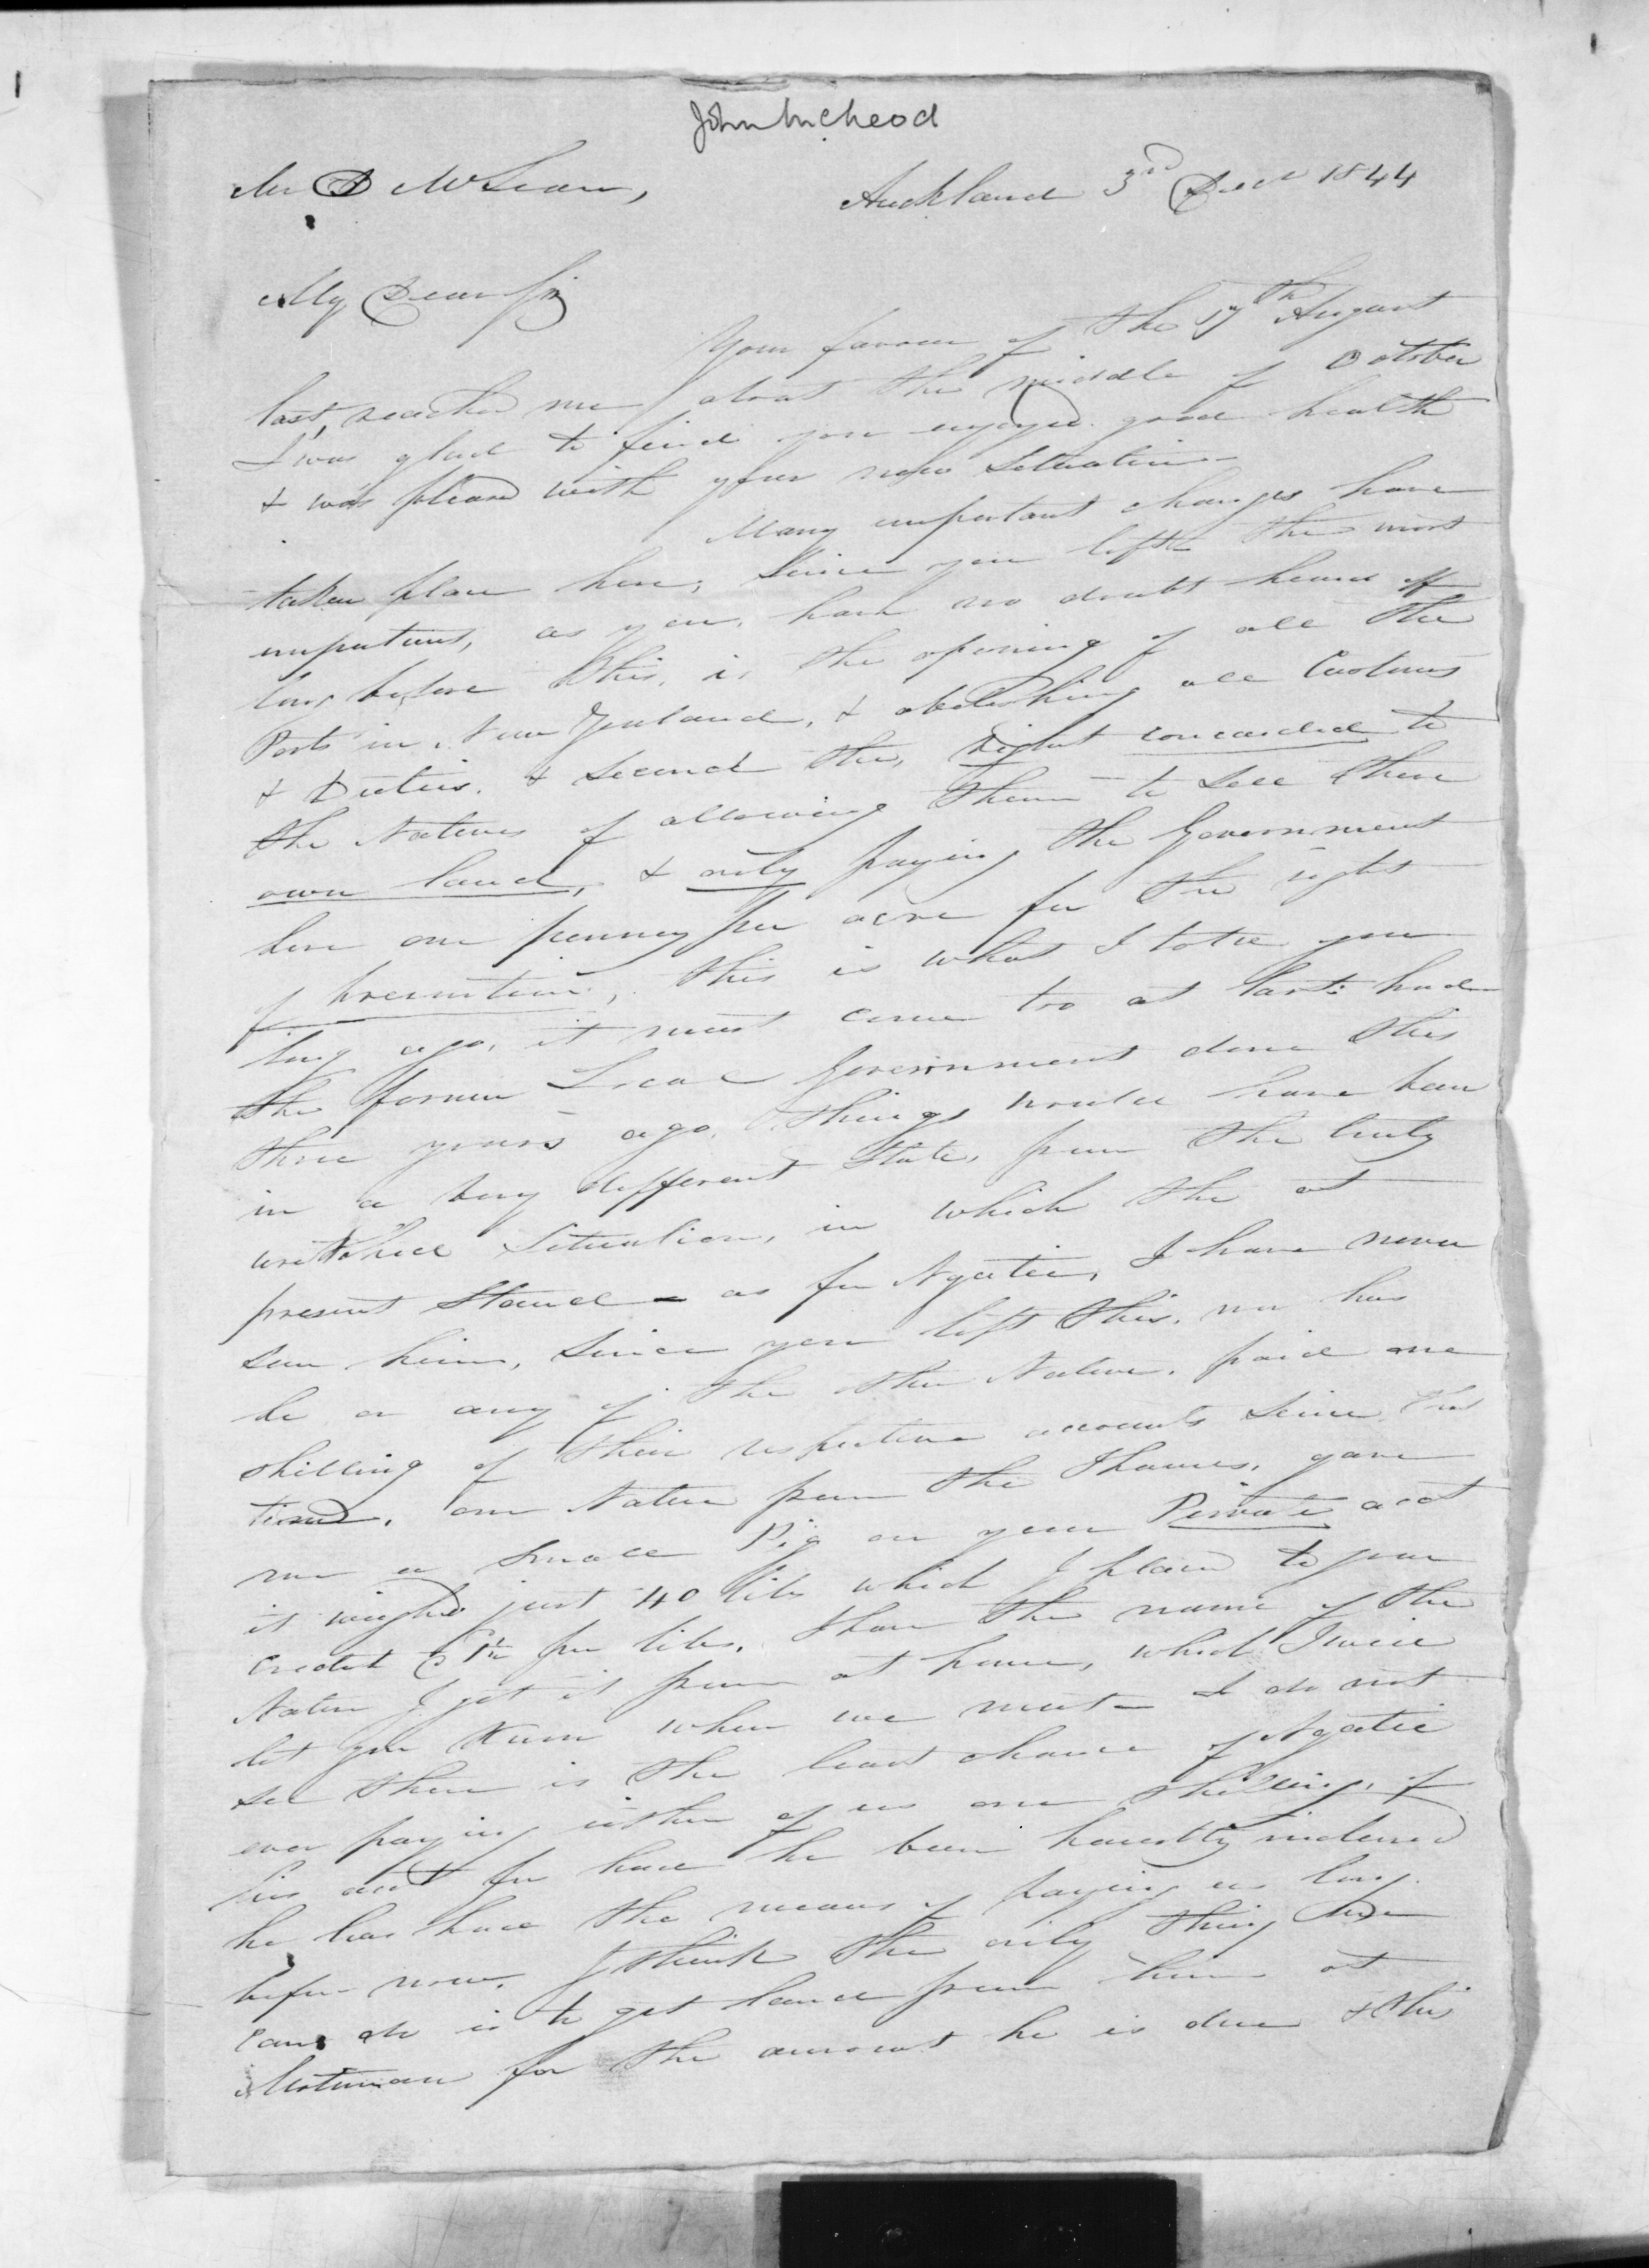 John McLeod
Mr D McLean,
Auckland 3rd Decr 1844
My Dear Sir
Your favour of the 17th August
last, reached me about the middle of October
I was glad to find you enjoyed good health
& was pleased with your new Situation
Many important changes have
taken place here, Since you left the most
important, as you, have no doubt heard of
long before this, is the opening of all the
Ports in New Zealand, & abolishing all Customs
& Duties. & Second the, right conceeded to
the Natives of allowing them to Sell there
own land, & only paying the Government
here one penney per acre for the right
of preemtion, this is what I told you
long ago, it must come too at last had
the former Local Government done this
three years ago, things would have been
in a very different State, from the truly
writched Situation, in which the at
present Stand - as for Ngatie, I have never
seen him, Since you left this, nor has
he or any of the other Natives, paid one
shilling of their respective accounts Since that
time, one Native from the Thames, gave
me a Small Pig on your Private acct
it weighed just 40 libs which I placed to your
Credit @ 1d per libs, I have the name of the
Native I got it from at home, which I will
let you know when we meet - I do not
see there is the least chance of Ngatie
ever paying either of us one Shilling, of
his acct for had he been honestly inclined
he has had the means of paying us long
before now, I think the only thing
can do is to get land from him at
for the amount he is due & this